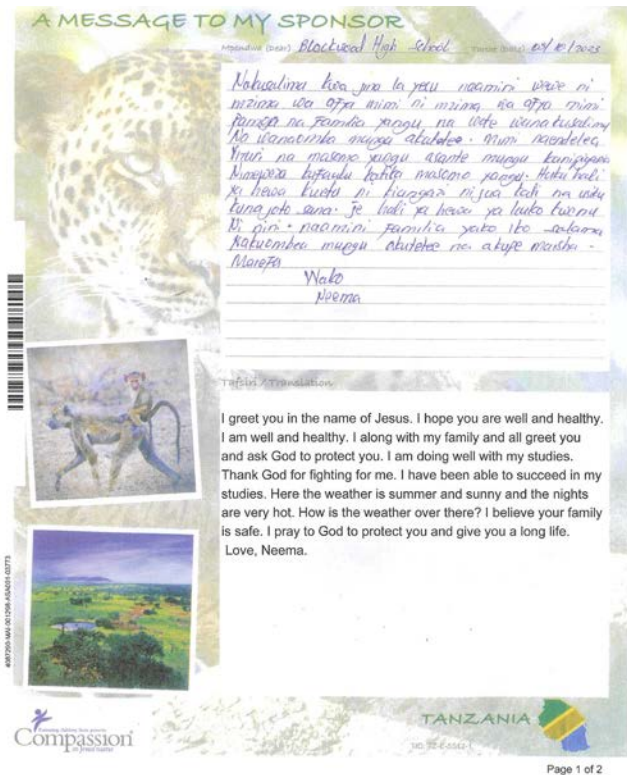 A MESSAGE TO MY SPONSOR
Mpendwa (Dear) Blackwood High School Tarehe (Date) 03/10/2023
Nakusalimu kwa jina la yesu naamini wewe ni
mzima wa afya mimi ni mzima wa afya mimi
Pamoja na Familia yangu na wote wanakusalimu
Na wanaomba mungu akutetee. Mimi naendelea
Vizuri na masomo yangu asante mungu kunipigania
Nimeweza kufaulu katika masomo yangu. Huku hali
ya hewa kwetu ni kiangazi ni jua kali na usiku
kuna joto sana. Je hali ya hewa ya huko kwenu
Ni nini. naamini Familia yako iko salama
Nakuombea mungu akutetee na akupe maisha
Marefu
Wako
Neema
Tafsiri / Translation
I greet you in the name of Jesus. I hope you are well and healthy.
I am well and healthy. I along with my family and all greet you
and ask God to protect you. I am doing well with my studies.
Thank God for fighting for me. I have been able to succeed in my
studies. Here the weather is summer and sunny and the nights
are very hot. How is the weather over there? I believe your family
is safe. I pray to God to protect you and give you a long life.
Love, Neema.
Compassion
in Jesus' name
TANZANIA
Page 1 of 2